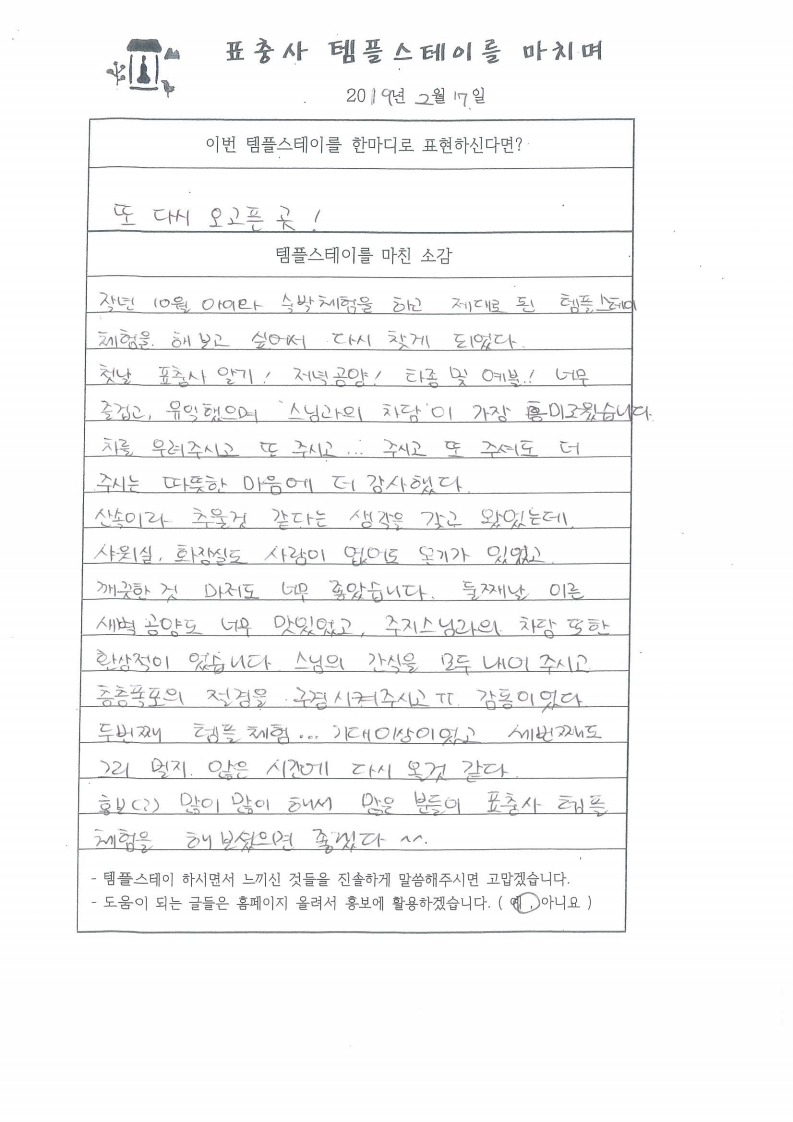 표충사 템플스테이를 마치며
2019년 2월 17일
이번 템플스테이를 한마디로 표현하신다면?
또 다시 오고픈 곳!
템플스테이를 마친 소감
작년 10월 아이와 숙박체험을 하고 제대로 된 템플스테이
체험을 해보고 싶어서 다시 찾게 되었다.
첫날 표충사 알기! 저녁공양! 타종 및 예불! 너무
즐겁고, 유익했으며 '스님과의 차담'이 가장 흥미로웠습니다.
차를 우려주시고 또 주시고... 주시고 또 주셔도 더
주시는 따뜻한 마음에 더 감사했다.
산속이라 추울것 같다는 생각을 갖고 왔었는데,
샤워실, 화장실도 사람이 없어도 온기가 있었고
깨끗한 것 마저도 너무 좋았습니다. 둘째날 이른
새벽 공양도 너무 맛있었고, 주지스님과의 차담 또한
환상적이 었습니다. 스님의 간식을 모두 내어 주시고
층층폭포의 절경을 구경시켜주시고ㅠ. 감동이었다.
두번째 템플체험... 기대이상이었고 세번째도
그리 멀지 않은 시간에 다시 올것 같다.
홍보(?) 많이 많이 해서 많은 분들이 표충사 템플
체험을 해보셨으면 좋겠다 ~~.
- 템플스테이 하시면서 느끼신 것들을 진솔하게 말씀해주시면 고맙겠습니다.
- 도움이 되는 글들은 홈페이지 올려서 홍보에 활용하겠습니다. ( 예 , 아니요 )